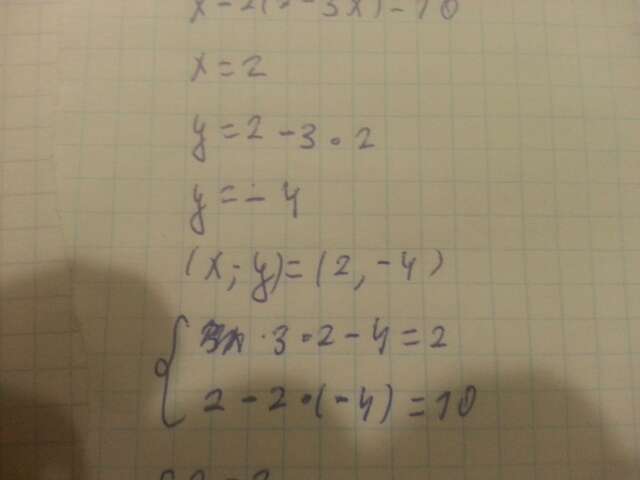 x-2(2-3x)=10
x=2
y=2-3·2
y=-4
(x;y)=(2,-4)
{ ·3·2-4=2
2-2·(-4)=10